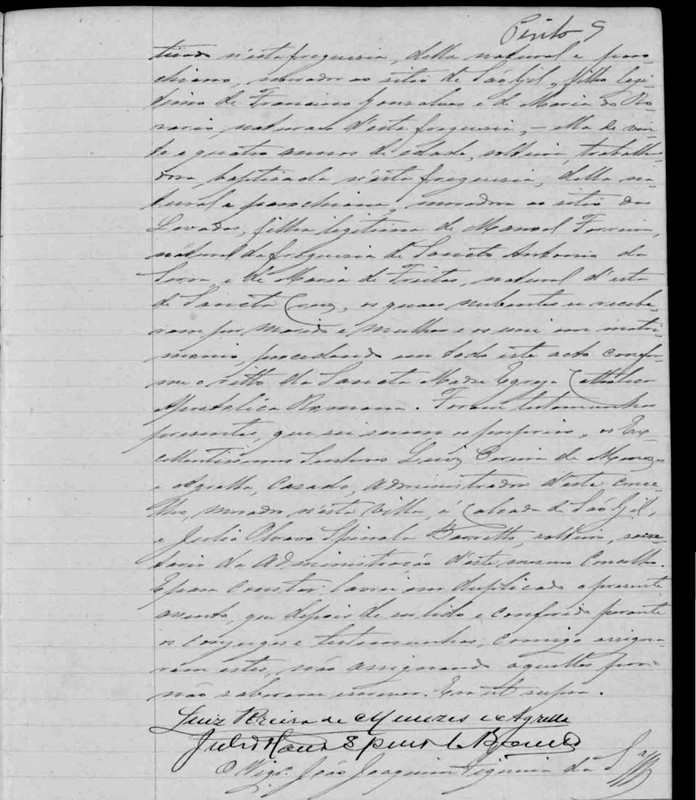 tisado n'esta freguesia, della natural e paro-
chiano, morador ao sitio de São Gil, filho legi-
timo de Francisco Gonsalves e de Maria do Ro-
sario, naturaes d'esta freguesia, – ella de vin-
te e quatro annos de edade, solteira, trabalha-
dora, baptisada n'esta freguesia, della na-
tural e parochiana, moradora ao sitio das
Levadas, filha legitima de Manoel Ferreira,
natural da freguesia de Sancto Antonio da
Serra, e de Maria de Freitas, natural d'esta
de Sancta Cruz, os quaes nubentes se recebe-
ram por marido e mulher e os uni em matri-
monio, procedendo em todo este acto confor-
me o ritto da Sancta Madre Egreja Catholica
Apostolica Romana. Foram testemunhas
presentes, que sei serem os proprios, os Ex-
cellentissimos Senhores Luiz Pereira de Menezes
e Agrella, casado, administrador d'este conce-
lho, morador n'esta Villa, á Calçada de São Gil,
e Julio Spinola Barretto, solteiro, secre-
tario da Administração d'este mesmo Concelho.
E para constar lavrei em duplicado o presente
assento, que depois de ser lido e conferido perante
os conjuges e testemunhas, comigo assigna-
ram estes, não assignando aquelles por
não saberem escrever. Era ut supra.
Luiz Pereira de Menezes e Agrella
Julio Spinola Barretto
O Vigr.º João Joaquim da